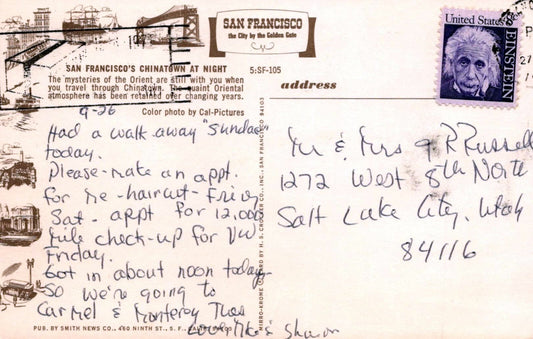 SAN FRANCISCO
the City by the Golden Gate
United States 8c
EINSTEIN
SAN FRANCISCO'S CHINATOWN AT NIGHT
5:SF-105
The mysteries of the Orient are still with you when
you travel through Chinatown. The quaint Oriental
atmosphere has been retained over changing years.
Color photo by Cal-Pictures
address
9-26
Had a walk away "Sundae"
today.
Please make an appt.
for me - haircut - Fri or
Sat. appt for 12,000
mile check-up for VW
Friday.
Got in about noon today
So we're going to
Carmel & Monterey Thurs
Love & Sharon
Mr & Mrs R Russell
1272 West 8th North
Salt Lake City, Utah
84116
MIRRO-KROME CARD BY H. S. CROCKER CO., INC., SAN FRANCISCO 94103
PUB. BY SMITH NEWS CO., 460 NINTH ST., S. F., CALIF. 94103